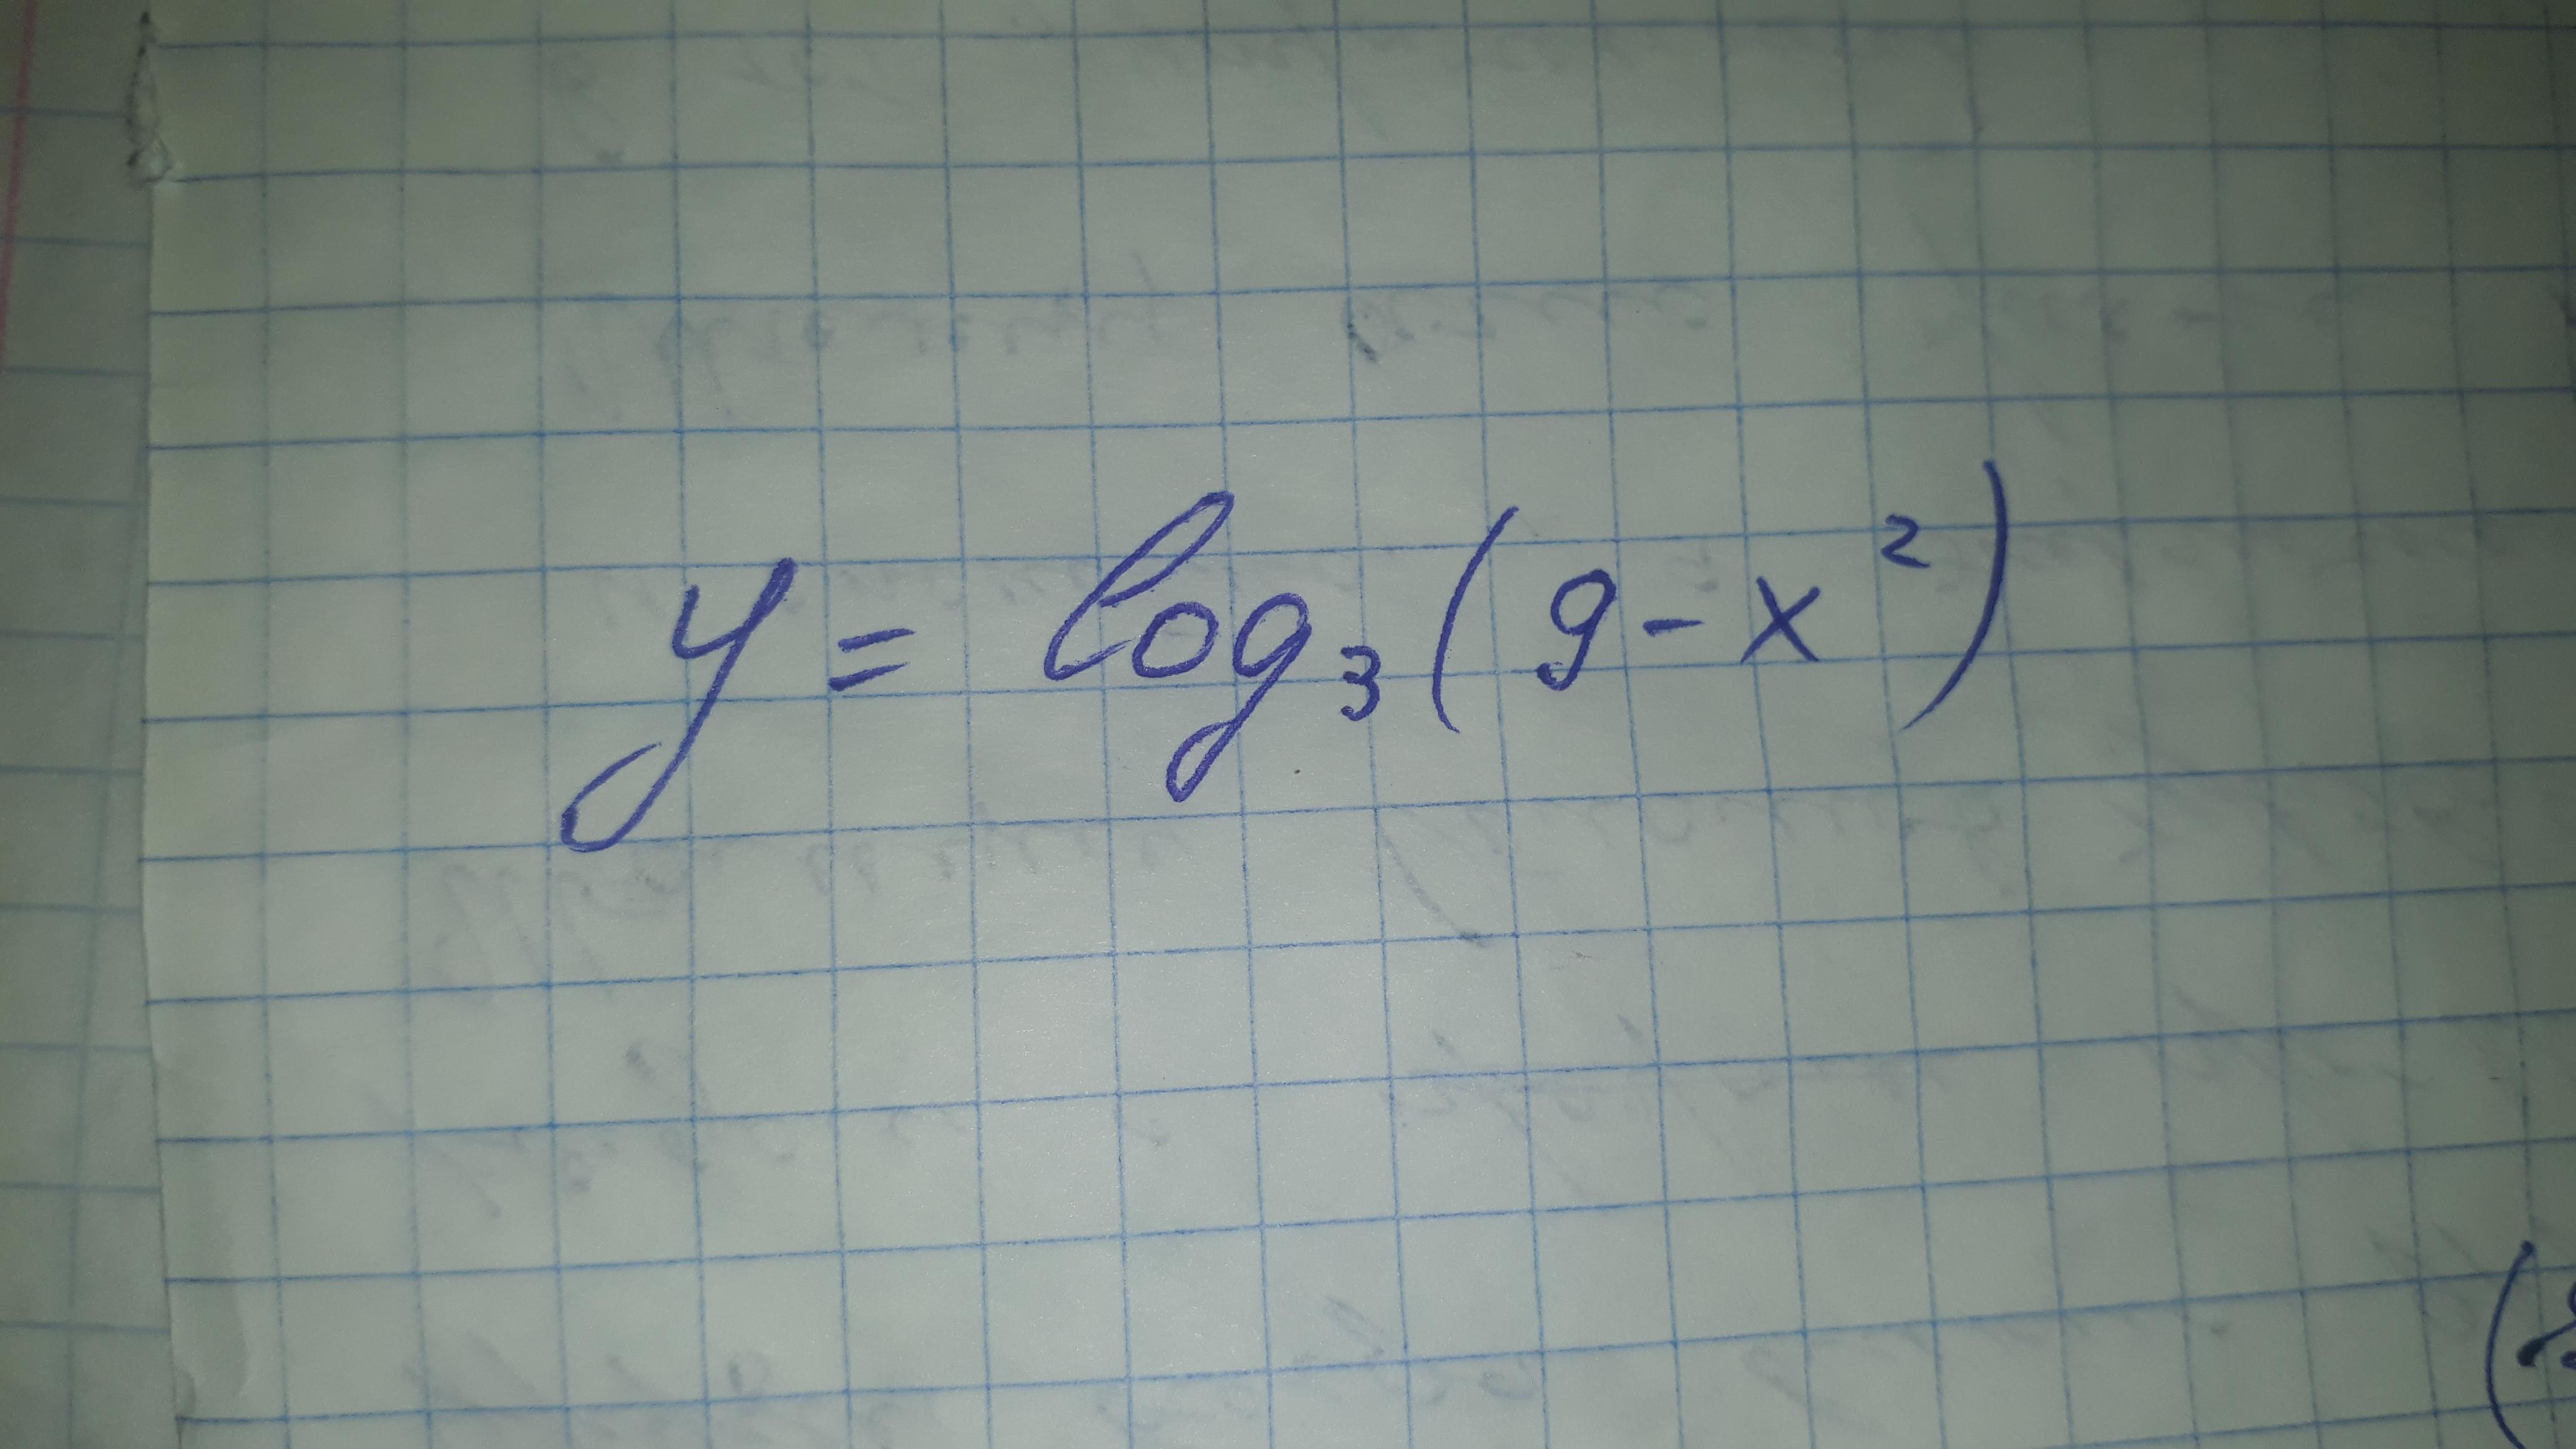 y = log₃(9 - x²)